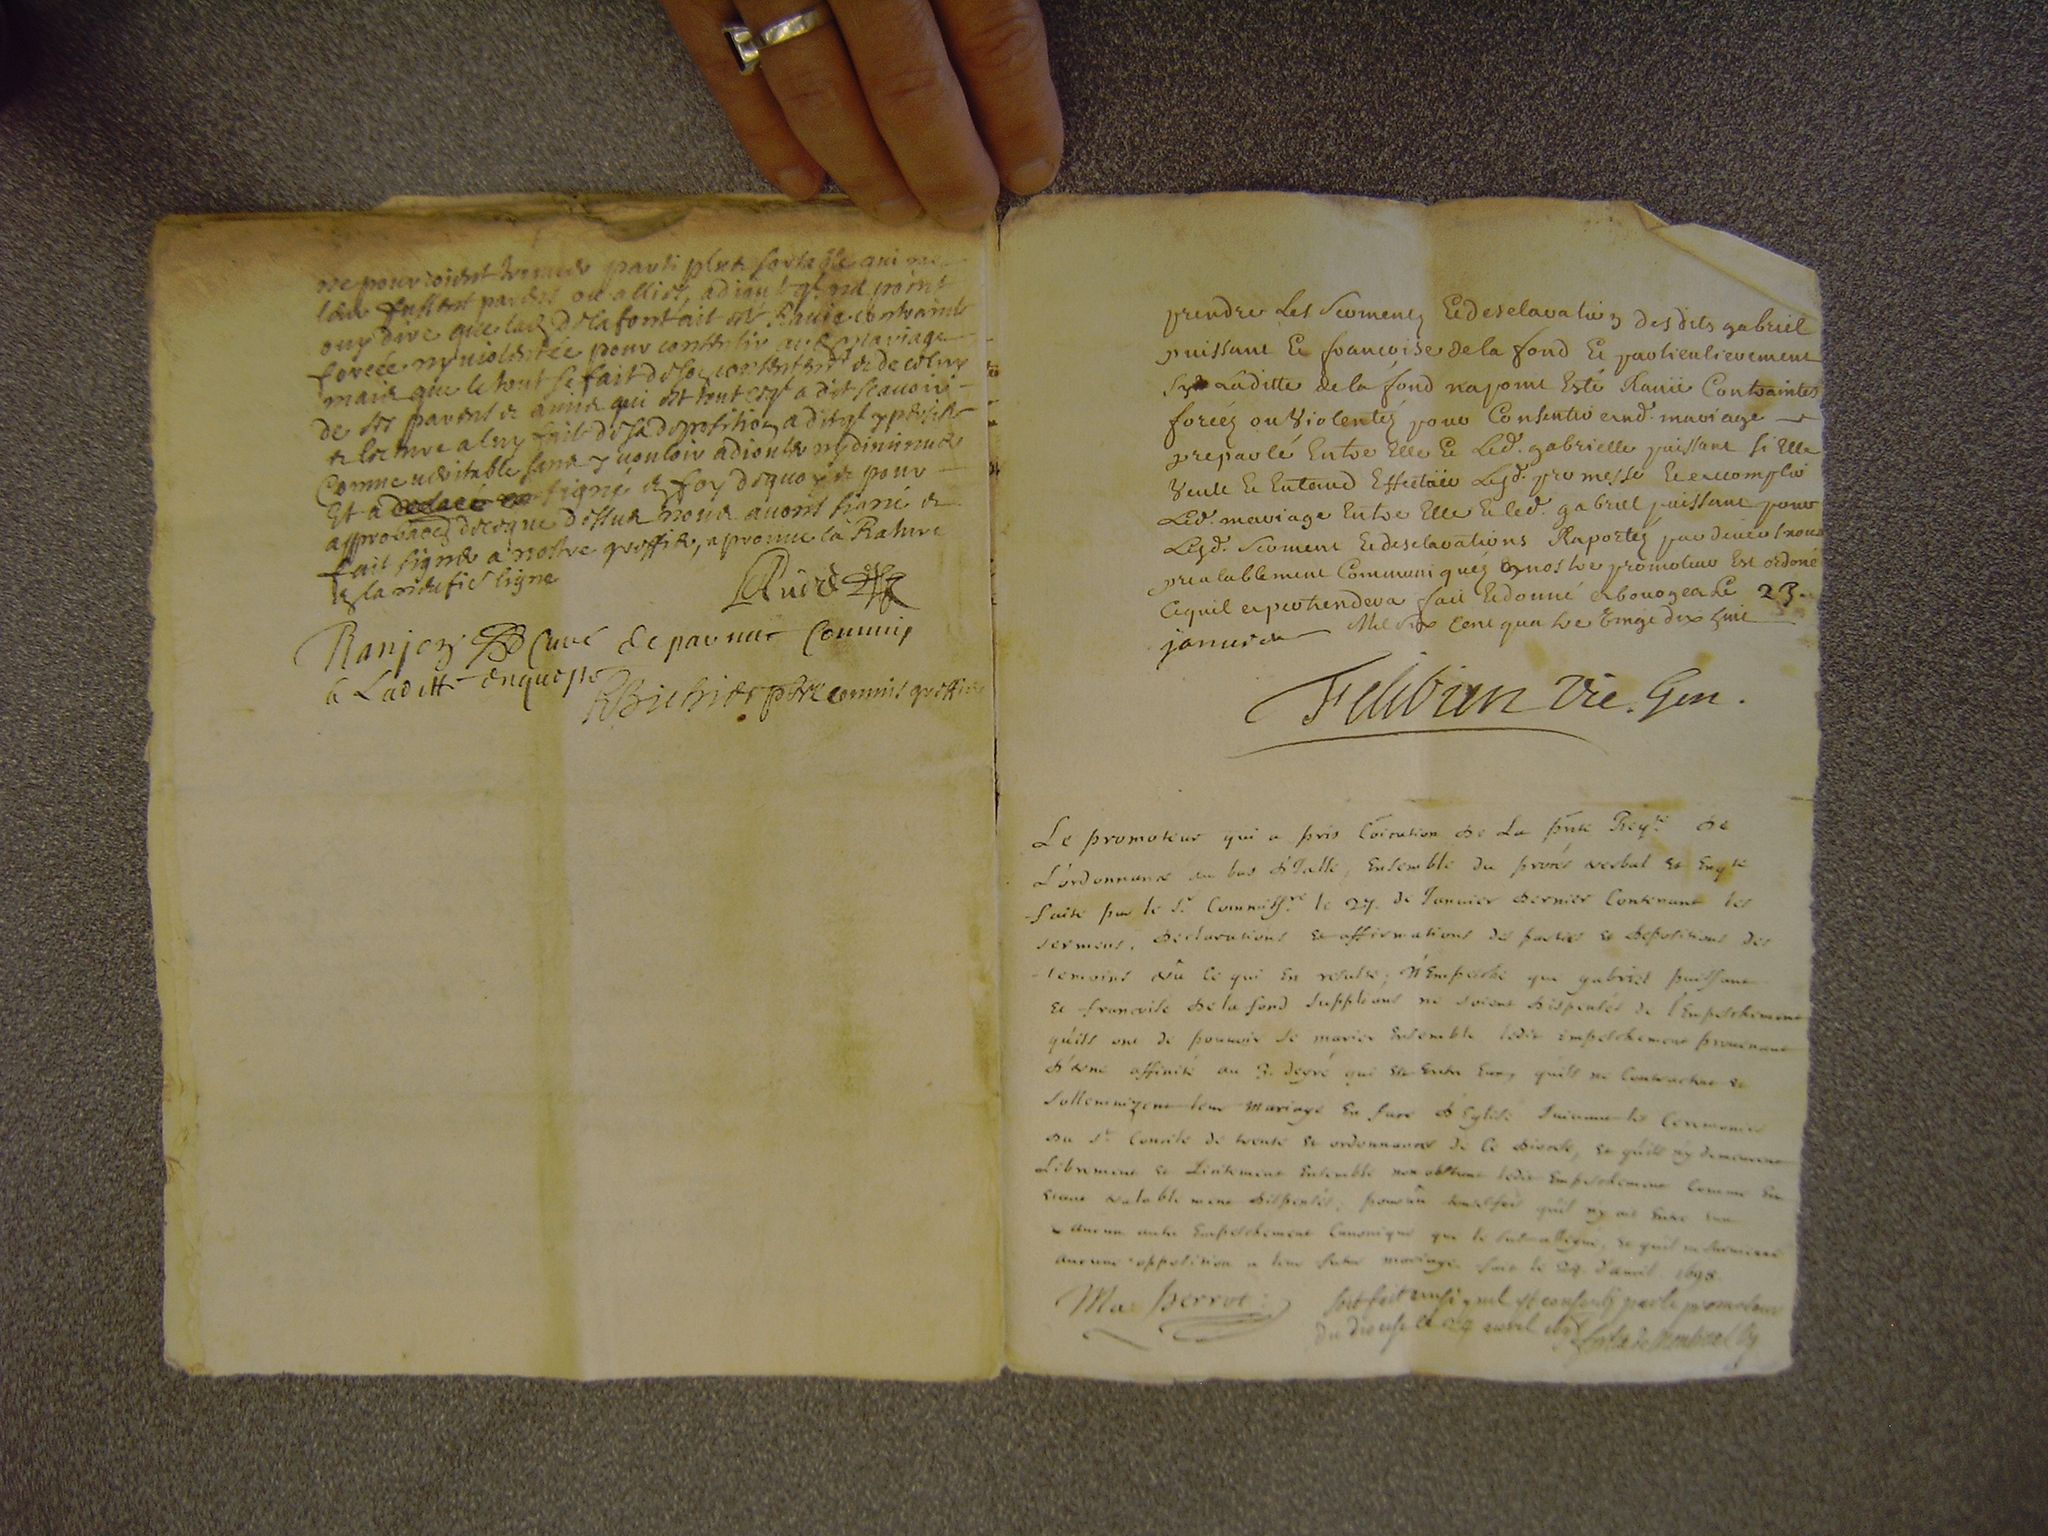 ne pourroient trouver parti plus sortable qui ne
leur fussent parens ou alliés, adjoute qu'il n'a point
ouy dire que lad. Delafont ait esté Ravie contrainte
forcée ny violentée pour consentir aud. mariage
mais que le tout se fait de son consentemt et de celuy
de ses parens et amis qui est tout ce qu'il a dit scavoir
et lecture a luy fait de sa deposition, a dit qu'il y persiste
Comme veritable sans y vouloir adjouter ny diminuer
Et a signé en foy dequoy et pour
approbaon de ce que dessus nous avons signé et
fait signer a nostre greffier, approuvé la Rature
en la neufie ligne
Ranjon Curé de commis
a Laditte enqueste
commis greffier
prendre Les Sermentz Et desclaration desdits gabriel
puissant Et francoise de la fond Et particulierement
sy Laditte de la fond na point Esté Ravie Contraintes
forcés ou Violentés pour Consentir aud. mariage
preparlé Entre Elle Et Led. gabrielle puissant si Elle
Veult Et Entend Effectuer Lesd. promesse Et accomplir
Led. mariage Entre Elle Et led. gabriel puissant pour
Lesd. Serment Et desclarations Raportés par devers nous
prealablement Communiqués a nostre promoteur Est ordoné
Ce quil apartiendera fait Et donné a bourges Le 23
janvier Mil Six Cent quatre Vingt dix huit
Felibien Vic. Gen.
Le promoteur qui a pris Coication de La pnte Reqte de
L'ordonnance au bas d'Icelle, Ensemble du procés verbal et Enqte
faite par le Sr. Commissre le 27. de Janvier dernier Contenant les
sermens, declarations et affirmations des parties et depositions des
temoins vû ce qui En resulte; N'Empesche que gabriel puissant
et francoise de la fond supplians ne soient dispensés de l'Empeschement
qu'ils ont de pouvoir se marier Ensemble ledit empeschement provenant
d'une affinité au 3. degré qui est Entre Eux, qu'ils ne Contractent et
sollemnizent leur Mariage En face d'Eglise suivant les Ceremonies
du St. Concile de trente et ordonnances de ce diocese, et qu'ils n'y demeurent
Librement et Licitement Ensemble non obstant ledit Empeschement Comme En
estant valablement dispensés; pourvû toutesfois qu'il n'y ait Entre eux
aucun autre Empeschement Canonique que le susallegué, et qu'il ne survienne
aucune opposition a leur futur mariage. fait le 24. d'avril 1698.
Ma: Perrot:
soit fait ainsi quil est consenty par le promoteur
du diocese le 24 avril 1698